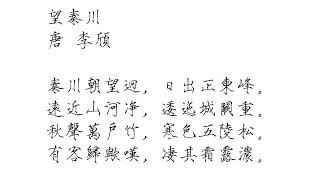 望秦川
唐 李頎
秦川朝望迥，日出正東峰。
遠近山河净，逶迤城闕重。
秋聲萬戶竹，寒色五陵松。
有客歸歟嘆，凄其霜露濃。